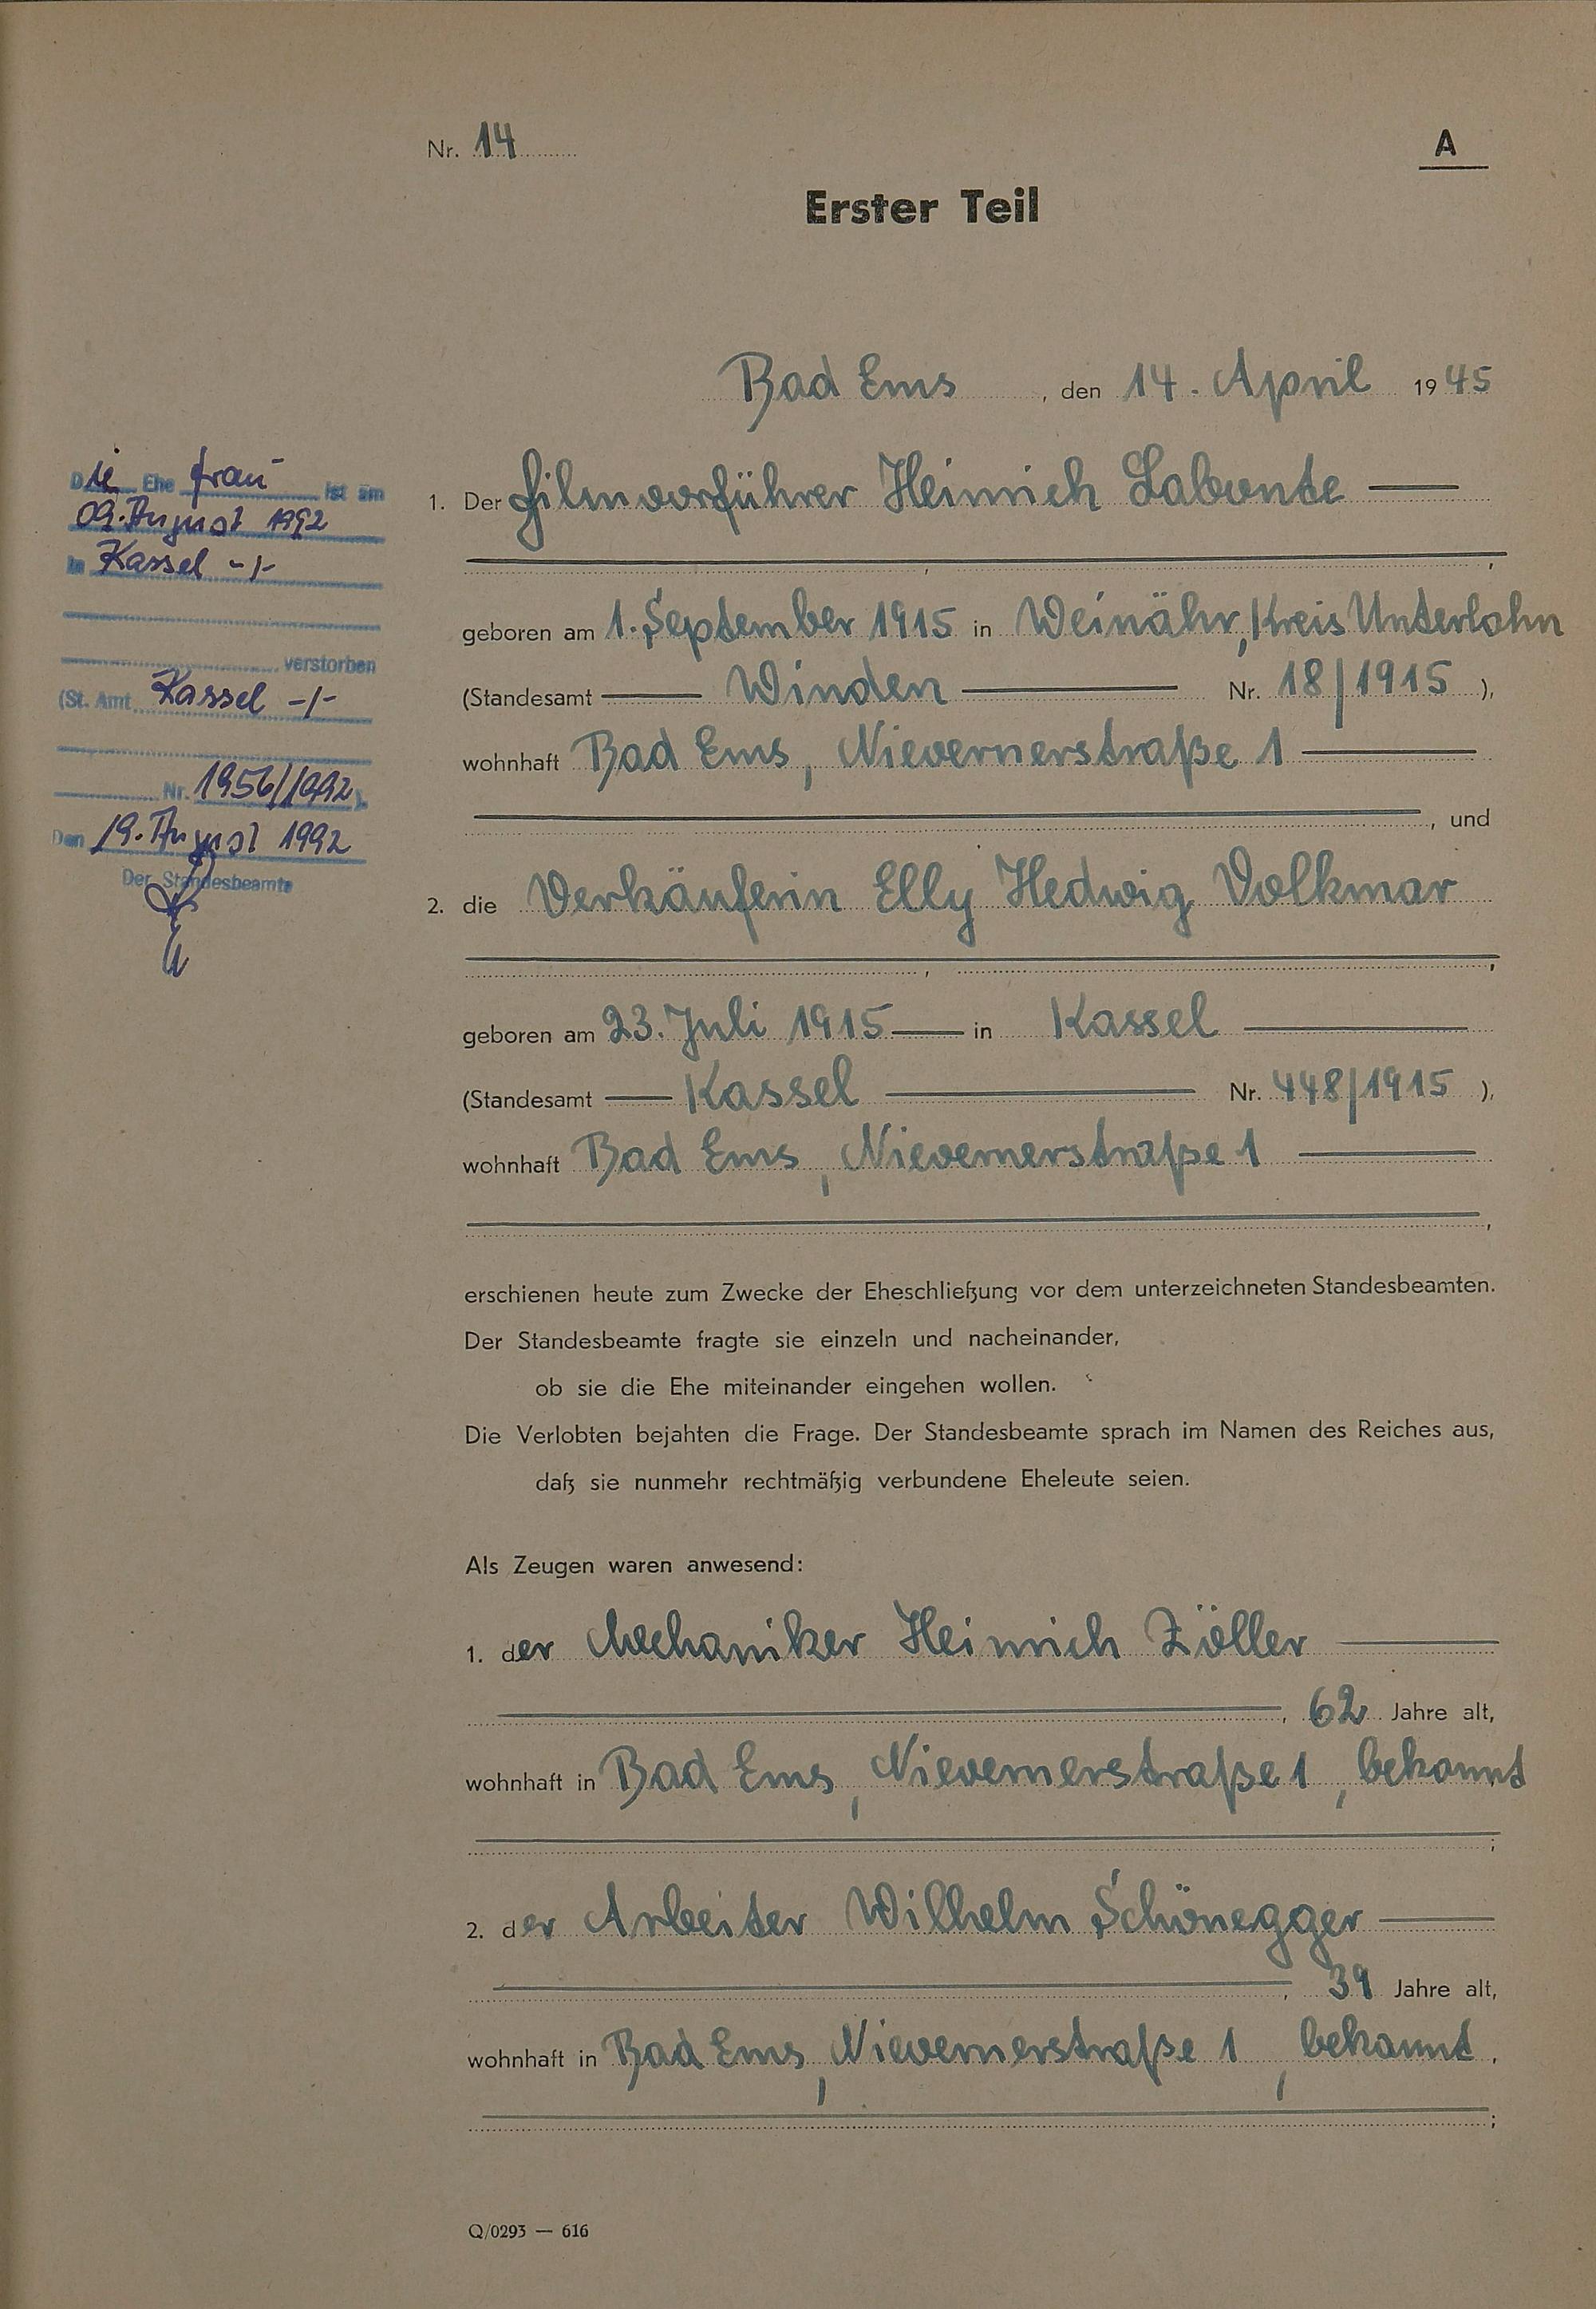 Nr. 14
A
Erster Teil
Bad Ems, den 14. April 1945
1. Der Filmvorführer Heinrich Labonte
geboren am 1. September 1915 in Weinähr, Kreis Unterlahn
(Standesamt Winden Nr. 18/1915),
wohnhaft Bad Ems, Nievernerstraße 1
, und
2. die Verkäuferin Elly Hedwig Volkmar
geboren am 23. Juli 1915 in Kassel
(Standesamt Kassel Nr. 448/1915),
wohnhaft Bad Ems, Nievernerstraße 1
erschienen heute zum Zwecke der Eheschließung vor dem unterzeichneten Standesbeamten.
Der Standesbeamte fragte sie einzeln und nacheinander,
ob sie die Ehe miteinander eingehen wollen.
Die Verlobten bejahten die Frage. Der Standesbeamte sprach im Namen des Reiches aus,
daß sie nunmehr rechtmäßig verbundene Eheleute seien.
Als Zeugen waren anwesend:
1. der Mechaniker Heinrich Zöller
, 62 Jahre alt,
wohnhaft in Bad Ems, Nievernerstraße 1, bekannt
;
2. der Arbeiter Wilhelm Schönegger
, 39 Jahre alt,
wohnhaft in Bad Ems, Nievernerstraße 1, bekannt.
;
Q/0293 — 616
Die Ehefrau ist am
09. August 1992
in Kassel -/-
verstorben
(St. Amt Kassel -/-
Nr. 1956/1992).
Den 19. August 1992
Der Standesbeamte